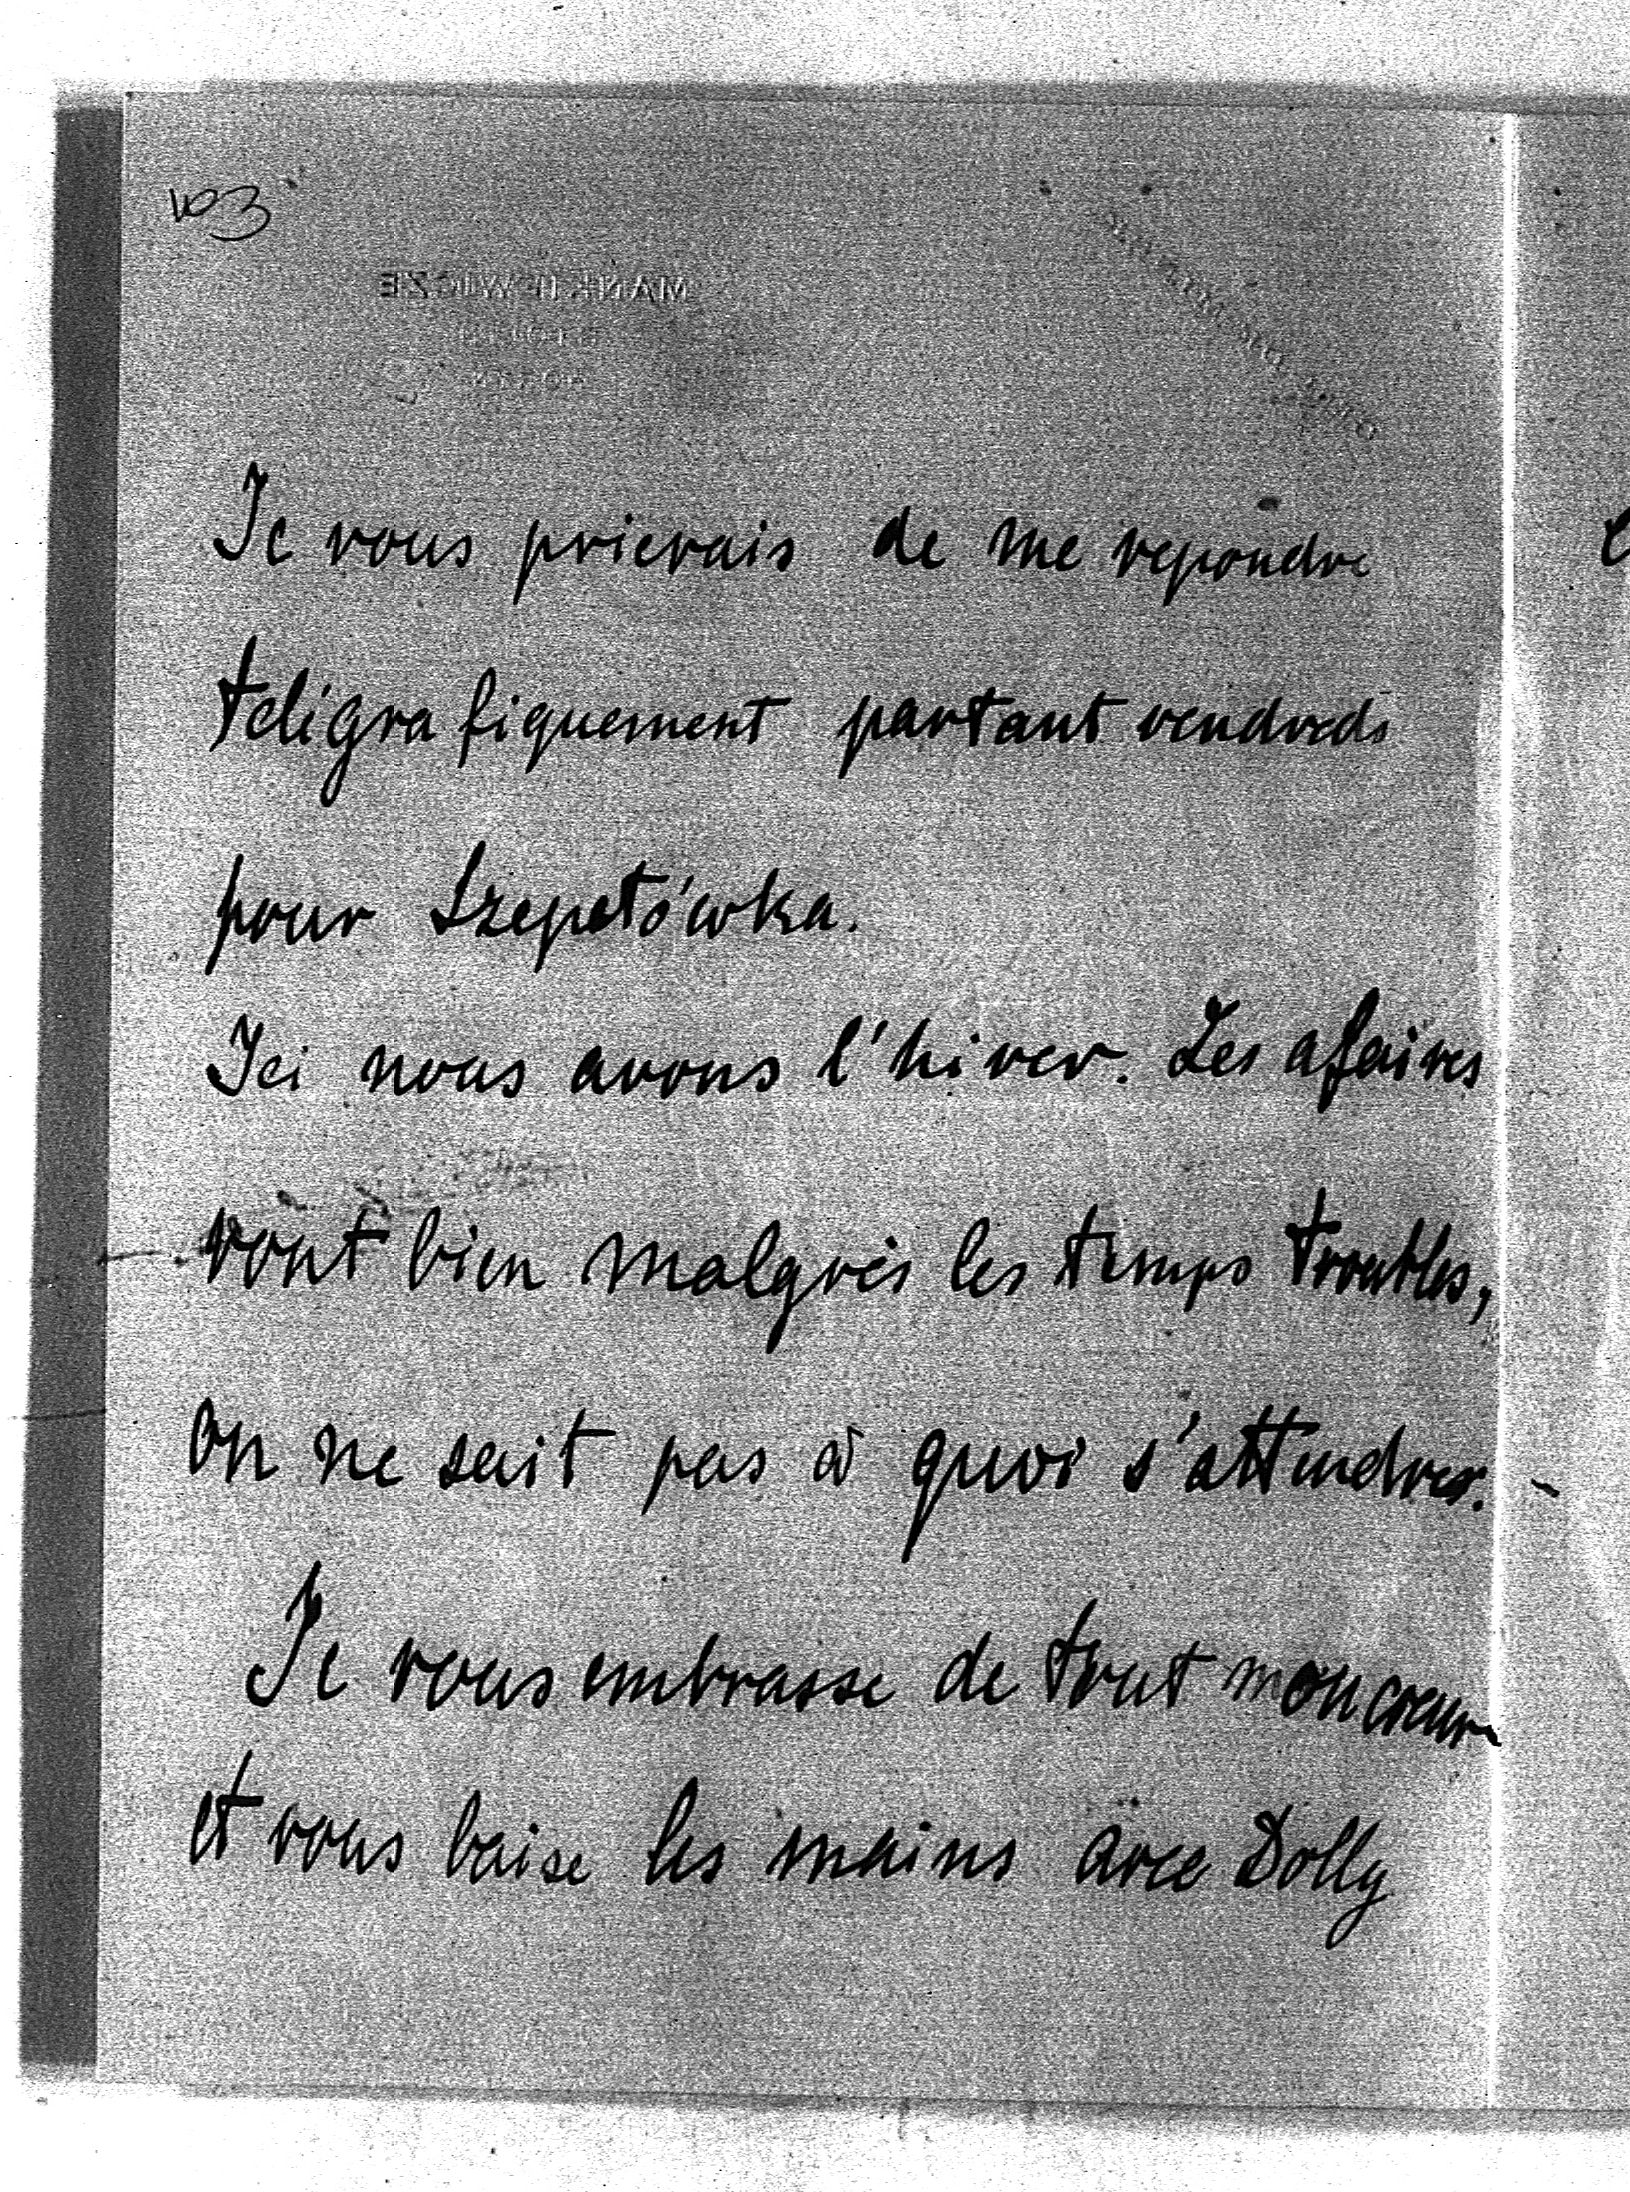 103
MANKIEWICZE
Je vous prierais de me repondre
teligrafiquement partant vendredi
pour Szepetówka.
Ici nous avons l'hiver. Les afaires
vont bien malgrés les temps troubles,
on ne sait pas à quoi s'attendres. -
Je vous embrasse de tout mon coeur
et vous baise les mains avec Dolly